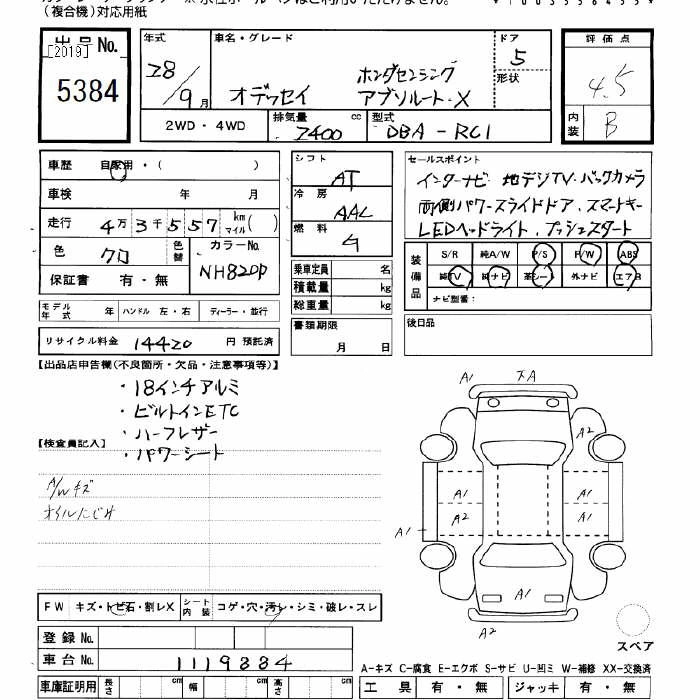 (複合機)対応用紙
出品No.
[2019]
5384
年式
28/9月
車名・グレード
オデッセイ
ホンダセンシング
アブソルート・X
ドア
5
形状
2WD・4WD
排気量 2400 cc
型式 DBA-RC1
評価点
4.5
内装
B
車歴 自家用・( )
車検 年 月
走行 4万3千557 km マイル( )
色 クロ 色替
カラーNo.
NH820P
保証書 有・無
モデル年式 年 ハンドル 左・右 ディーラー・並行
リサイクル料金 14420 円 預託済
シフト
AT
冷房
AAC
燃料
G
乗車定員 名
積載量 kg
総重量 kg
書類期限
月 日
セールスポイント
インターナビ 地デジTV.バックカメラ
両側パワースライドドア.スマートキー
LEDヘッドライト.プッシュスタート
装備品
S/R 純A/W P/S P/W ABS
純TV 純ナビ 革シート 外ナビ エアB
ナビ型番:
後日品
【出品店申告欄(不良箇所・欠品・注意事項等)】
・18インチアルミ
・ビルトインETC
・ハーフレザー
・パワーシート
【検査員記入】
A/Wキズ
オイルにじみ
A1
XA
A2
A1 A1
A2 A1
A1
A1
A2
スペア
FW キズ・トビ石・割レX
シート内装 コゲ・穴・汚レ・シミ・破レ・スレ
登録No.
車台No. 1119884
車庫証明用 長さ cm 幅 cm 高さ cm
A-キズ C-腐食 E-エクボ S-サビ U-凹ミ W-補修 XX-交換済
工具 有・無 ジャッキ 有・無